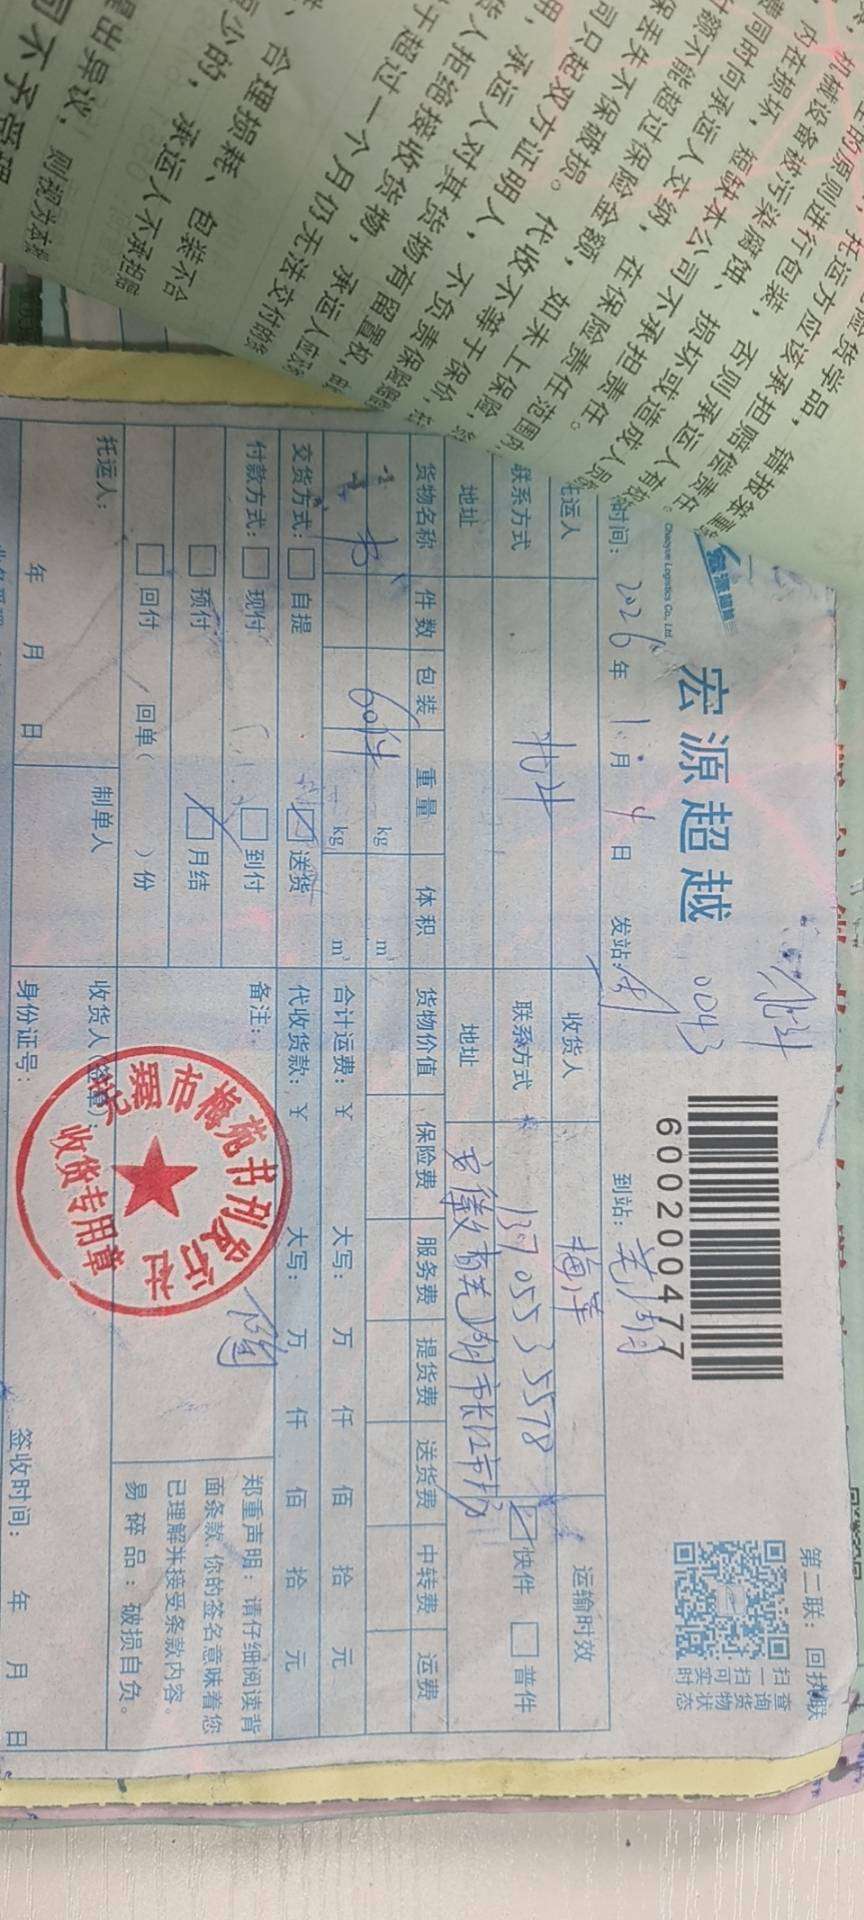 第二联：回执联
宏源超越
Chaoyue Logistics Co., Ltd.
0043
600200477
扫一扫
查询货物
可实时状态
时间：2026年1月4日 发站： 到站：芜湖
托运人 收货人 梅萍 运输时效
联系方式 北斗 联系方式 13705535578 快件 普件
地址 地址 安徽省芜湖市长江市场
货物名称 件数 包装 重量 体积 货物价值 保险费 服务费 提货费 送货费 中转费 运费
kg m³
书 60件 kg m³ 合计运费：￥ 大写： 万 仟 佰 拾 元
交货方式： 自提 送货 代收货款：￥ 大写： 万 仟 佰 拾 元
付款方式： 现付 到付 备注：
预付 月结
回付 回单（ ）份
郑重声明：请仔细阅读背
面条款，你的签名意味着您
已理解并接受条款内容。
易碎品：破损自负。
托运人： 制单人 收货人（签章）：
年 月 日 身份证号： 签收时间： 年 月 日
芜湖市梅苑书刊发行社
收货专用章
陶
的原则进行包装，否则承运人有权
机械设备被污染腐蚀、损坏或造成人
内在损坏，短缺本公司不承担责任。
同时向承运人交纳，在保险责任范围
额不能超过保险金额，如未上保险，
保丢失不保破损。代收不等于保价，
司只起双方证明人，不负责保险
明，承运人对其货物有留置权，
人拒绝接收货物，承运人应
于超过一个月仍无法交付的货
、合理损耗、包装不合
少的，承运人不承担
提出异议，则视为本
不予受理